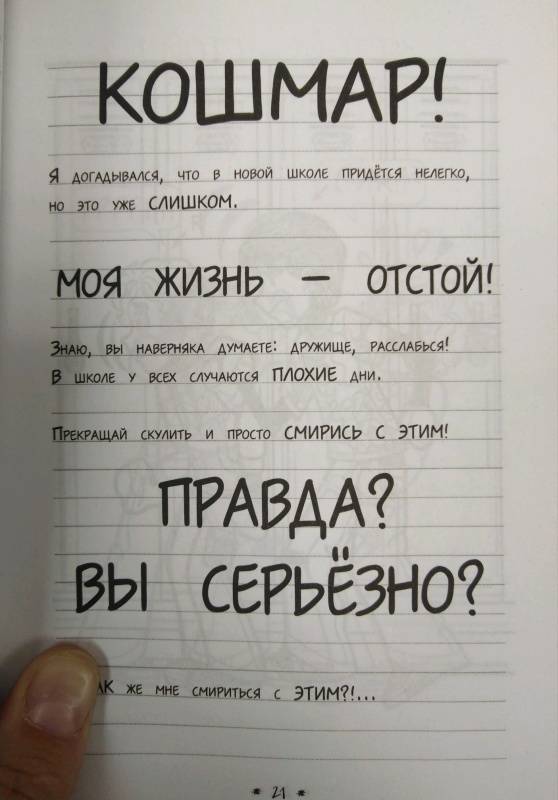 КОШМАР!
Я ДОГАДЫВАЛСЯ, ЧТО В НОВОЙ ШКОЛЕ ПРИДЁТСЯ НЕЛЕГКО,
НО ЭТО УЖЕ СЛИШКОМ.
МОЯ ЖИЗНЬ – ОТСТОЙ!
ЗНАЮ, ВЫ НАВЕРНЯКА ДУМАЕТЕ: ДРУЖИЩЕ, РАССЛАБЬСЯ!
В ШКОЛЕ У ВСЕХ СЛУЧАЮТСЯ ПЛОХИЕ ДНИ.
ПРЕКРАЩАЙ СКУЛИТЬ И ПРОСТО СМИРИСЬ С ЭТИМ!
ПРАВДА?
ВЫ СЕРЬЁЗНО?
ЖЕ МНЕ СМИРИТЬСЯ С ЭТИМ?!...
* 21 *